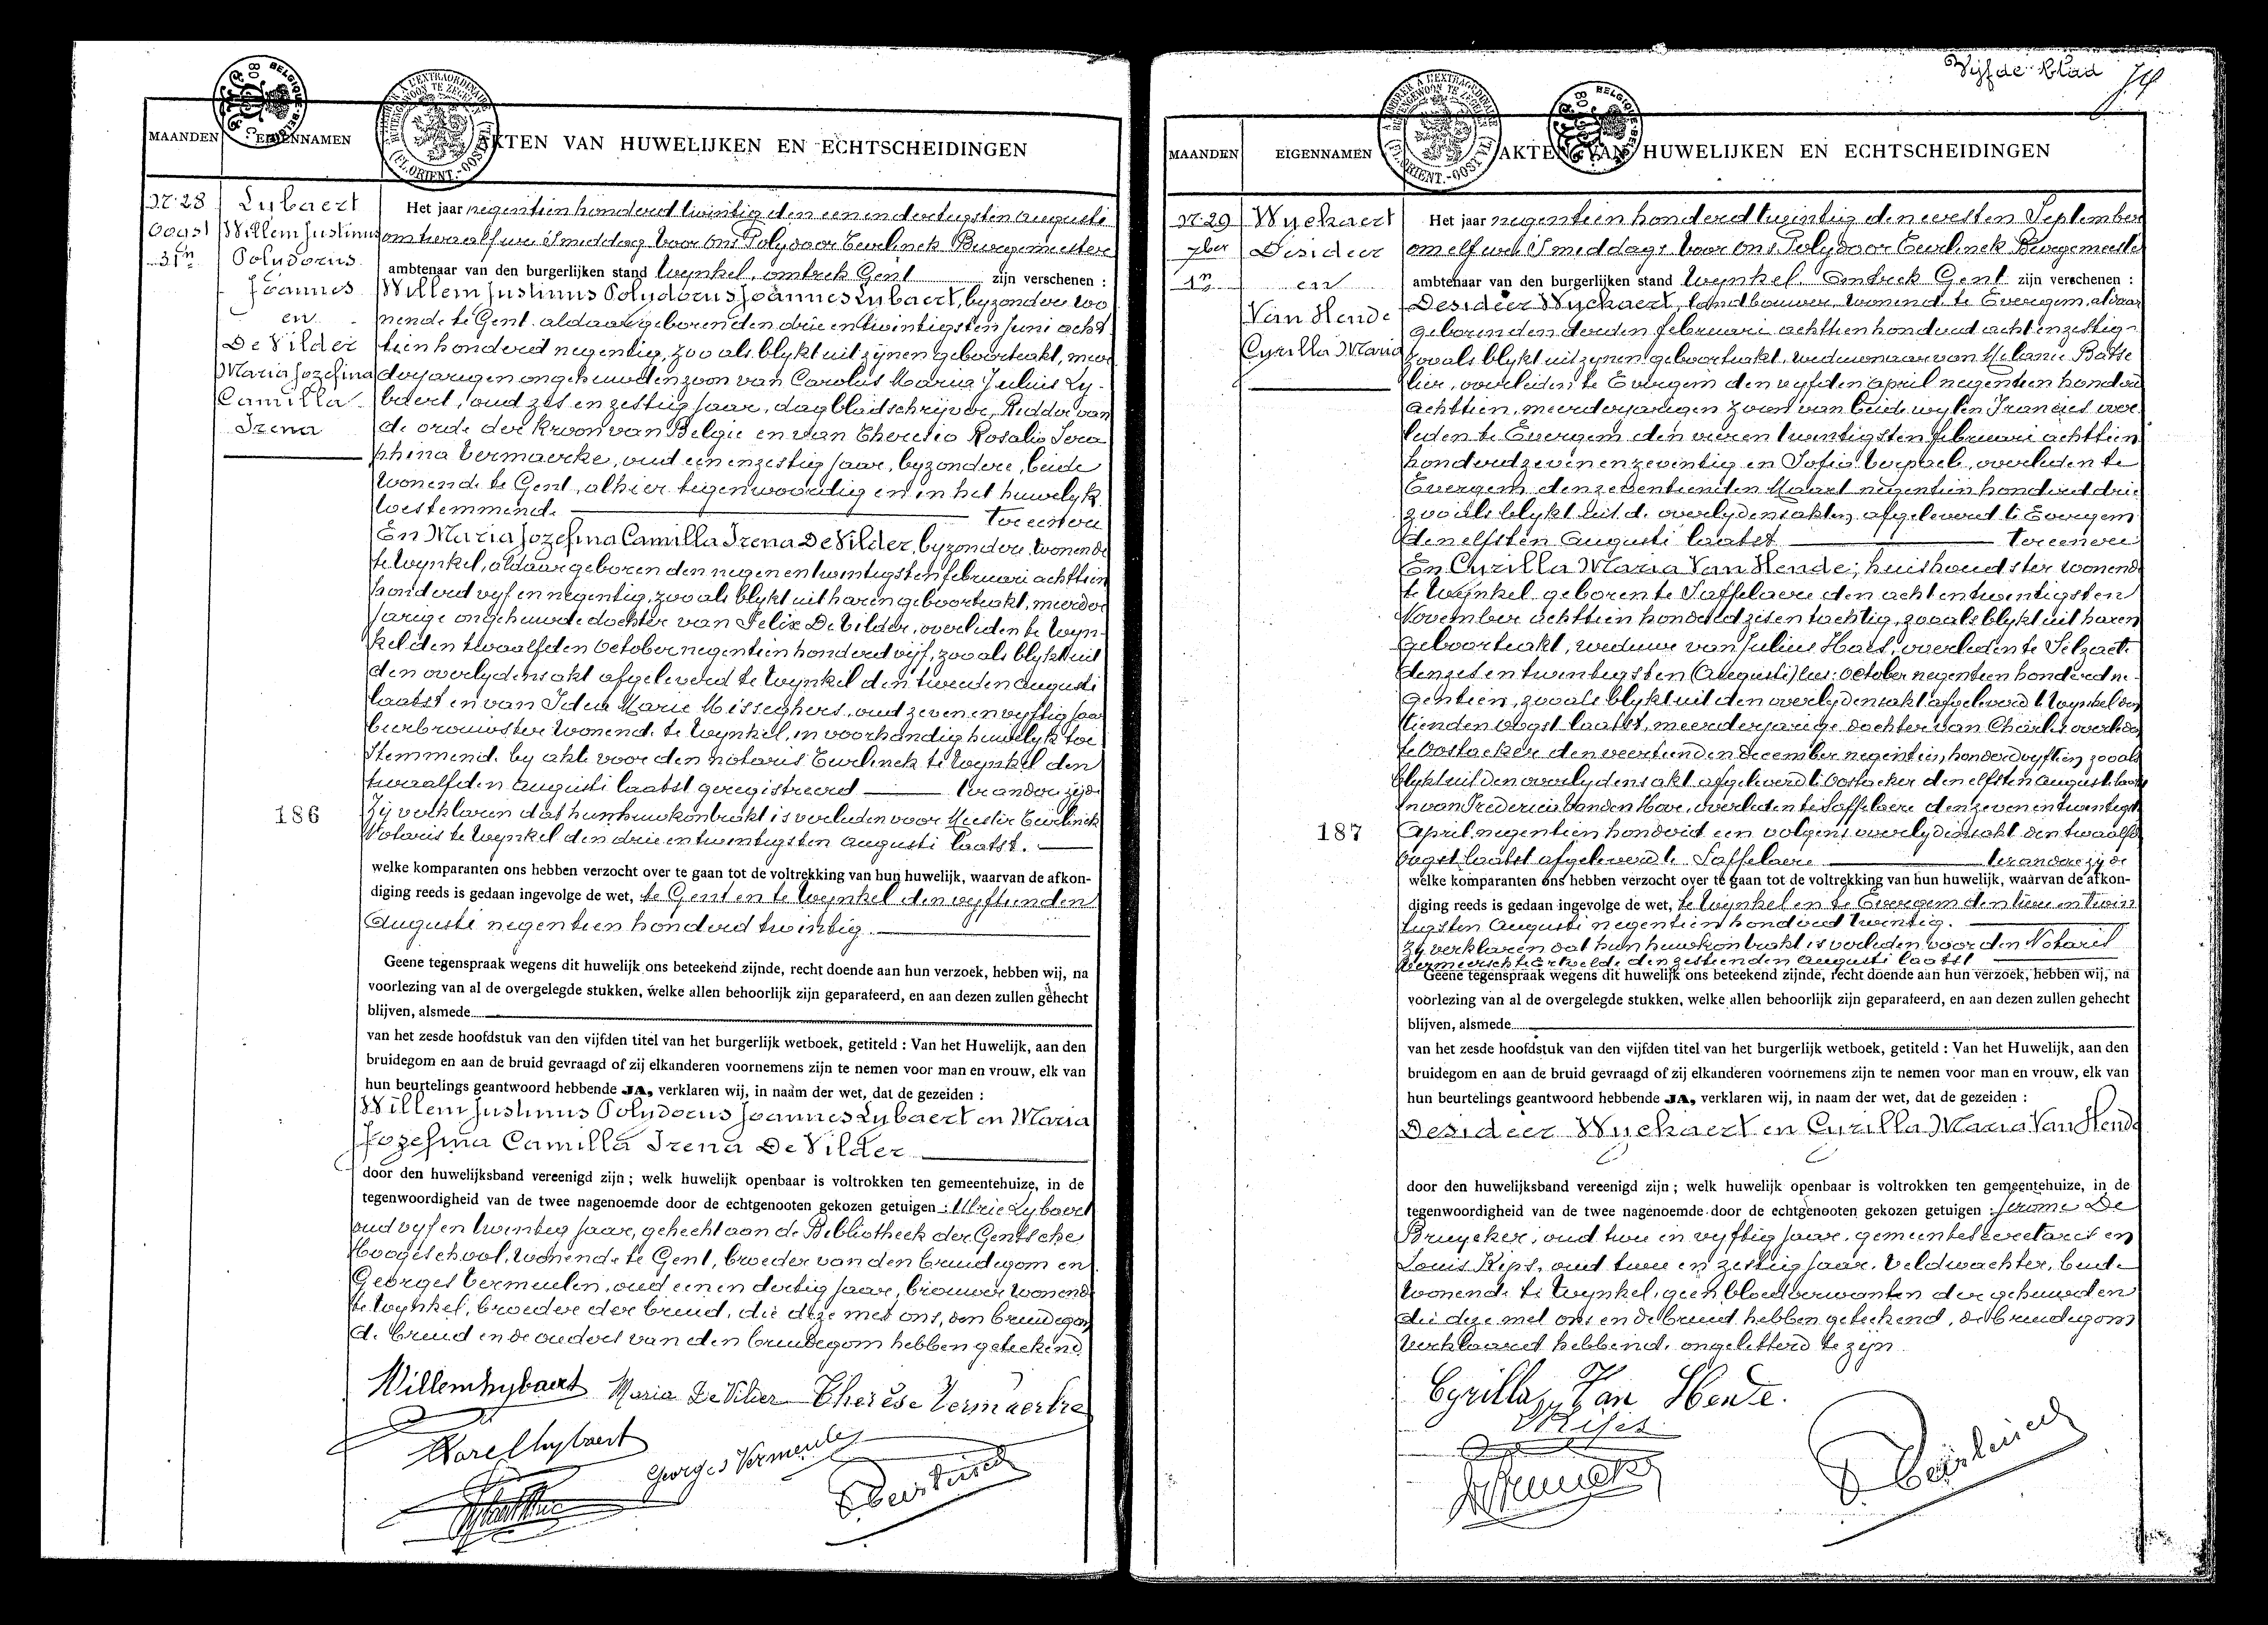 MAANDEN
EIGENNAMEN
AKTEN VAN HUWELIJKEN EN ECHTSCHEIDINGEN
Nr 28
Oogst
31n
Lybaert
Willem Justinus
Polydorus
Joannes
en
De Vilder
Maria Jozefina
Camilla
Irena
Het jaar negentien honderd twintig den een en dertigsten Augusti
om twaalf ure smiddag voor ons Polydoor Eurlinck Burgemeester
ambtenaar van den burgerlijken stand Wynkel, omtrek Gent zijn verschenen :
Willem Justinus Polydorus Joannes Lybaert, byzondere wo
nende te Gent aldaar geboren den drie en twintigsten Juni acht
tien honderd negentig, zoo als blykt uit zynen geboorteakt, meer
derjarigen ongehuwden zoon van Carolus Maria Julius Ly-
baert, oud zes en zestig jaar, dagbladschrijver, Ridder van
de orde der Kroon van Belgie en van Theresia Rosalia Sera
phina Vermaerke, oud een en zestig jaar, byzondere, beide
wonende te Gent, alhier tegenwoordig en in het huwelyk
toestemmend. Ter eenere
En Maria Jozefina Camilla Irena De Vilder, byzondere wonende
te Wynkel, aldaar geboren den negen en twintigsten februari achttien
honderd vyf en negentig, zoo als blykt uit haren geboorteakt, meerder
jarige ongehuwde dochter van Felix De Vilder, overleden te Wyn-
kel den twaalfden October negentien honderd vijf, zoo als blykt uit
den overlydensakt afgeleverd te Wynkel den tweeden Augusti
laatst en van Idea Marie Misseghers, oud zeven en vyftig jaar
bierbrouwster wonende te Wynkel, in voorhandig huwelyk toe
stemmend. by akte voor den notaris Eurlinck te Wynkel den
twaalfden Augusti laatst geregistreerd ter andere zijde
186
Zij verklaren dat hun huwkontrakt is verleden voor Meester Eurlinck
Notaris te Wynkel den drie en twintigsten Augusti laatst.
welke komparanten ons hebben verzocht over te gaan tot de voltrekking van hun huwelijk, waarvan de afkon-
diging reeds is gedaan ingevolge de wet, te Gent en te Wynkel den vyftienden
Augusti negentien honderd twintig.
Geene tegenspraak wegens dit huwelijk ons beteekend zijnde, recht doende aan hun verzoek, hebben wij, na
voorlezing van al de overgelegde stukken, welke allen behoorlijk zijn geparafeerd, en aan dezen zullen gehecht
blijven, alsmede
van het zesde hoofdstuk van den vijfden titel van het burgerlijk wetboek, getiteld : Van het Huwelijk, aan den
bruidegom en aan de bruid gevraagd of zij elkanderen voornemens zijn te nemen voor man en vrouw, elk van
hun beurtelings geantwoord hebbende JA, verklaren wij, in naam der wet, dat de gezeiden :
Willem Justinus Polydorus Joannes Lybaert en Maria
Jozefina Camilla Irena De Vilder
door den huwelijksband vereenigd zijn ; welk huwelijk openbaar is voltrokken ten gemeentehuize, in de
tegenwoordigheid van de twee nagenoemde door de echtgenooten gekozen getuigen : Ulric Lybaert
oud vyf en twintig jaar, gehecht aan de Bibliotheek der Gentsche
Hoogeschool, wonende te Gent, broeder van den bruidegom en
Georges Vermeulen, oud een en dertig jaar, brouwer wonende
te Wynkel, broeder der bruid, die deze met ons, den bruidegom
de bruid en de ouders van den bruidegom hebben geteekend.
Willem Lybaert Maria De Vilder Therèse Vermaerke
Karel Lybaert
Georges Vermeulen
Vijfde blad
MAANDEN
EIGENNAMEN
AKTEN VAN HUWELIJKEN EN ECHTSCHEIDINGEN
Nr 29
7ber
1n
Wychaert
Desideer
en
Van Hende
Cyrilla Maria
Het jaar negentien honderd twintig den eersten September
om elf ure smiddags voor ons Polydoor Eurlinck Burgemeester
ambtenaar van den burgerlijken stand Wynkel, omtrek Gent zijn verschenen :
Desideer Wychaert, landbouwer, wonend te Evergem, aldaar
geboren den derden februari achttien honderd acht en zestig
zooals blykt uit zynen geboorteakt, weduwnaar van Melanie Batse
lier, overleden te Evergem den vyfden April negentien honderd
achttien, meerderjarigen zoon van beide wylen Francies over
leden te Evergem den vier en twintigsten februari achttien
honderd zeven en zeventig en Sofia Verpaele, overleden te
Evergem den zeventienden Maart negentien honderd drie
zooals blykt uit de overlydensakten afgeleverd te Evergem
den elfsten Augusti laatst Ter eenere
En Cyrilla Maria Van Hende, huishoudster wonende
te Wynkel geboren te Saffelaere den acht en twintigsten
November achttien honderd zes en tachtig, zooals blykt uit haren
geboorteakt, weduwe van Julius Haes, overleden te Selzaete
den zes en twintigsten (Augusti) lees: October negentien honderd ne-
gentien, zooals blykt uit den overlydensakt afgeleverd te Wynkel den
tienden Oogst laatst, meerderjarige dochter van Charles overleden
te Oostacker den veertienden December negentien honderd vyftien, zooals
blykt uit den overlydensakt afgeleverd te Oostacker den elfsten Augusti laatst
en van Frederica Van den Hove, overleden te Saffelaere den zeven en twintigsten
187
April negentien honderd een volgens overlydensakt den twaalfden
Oogst laatst afgeleverd te Saffelaere ter andere zijde
welke komparanten ons hebben verzocht over te gaan tot de voltrekking van hun huwelijk, waarvan de afkon-
diging reeds is gedaan ingevolge de wet, te Wynkel en te Evergem den twee en twin
tigsten Augusti negentien honderd twintig.
Zy verklaren dat hun huwkontrakt is verleden voor den Notaris
Vermeersch te Ertvelde den zestienden Augusti laatst
Geene tegenspraak wegens dit huwelijk ons beteekend zijnde, recht doende aan hun verzoek, hebben wij, na
voorlezing van al de overgelegde stukken, welke allen behoorlijk zijn geparafeerd, en aan dezen zullen gehecht
blijven, alsmede
van het zesde hoofdstuk van den vijfden titel van het burgerlijk wetboek, getiteld : Van het Huwelijk, aan den
bruidegom en aan de bruid gevraagd of zij elkanderen voornemens zijn te nemen voor man en vrouw, elk van
hun beurtelings geantwoord hebbende JA, verklaren wij, in naam der wet, dat de gezeiden :
Desideer Wychaert en Cyrilla Maria Van Hende
door den huwelijksband vereenigd zijn ; welk huwelijk openbaar is voltrokken ten gemeentehuize, in de
tegenwoordigheid van de twee nagenoemde door de echtgenooten gekozen getuigen : Jerome De
Bruycker, oud twee en vyftig jaar, gemeentesecretaris en
Louis Kips, oud twee en zestig jaar, veldwachter, beide
wonende te Wynkel, geen bloedverwanten der gehuwden
die deze met ons en de bruid hebben geteekend, de bruidegom
verklaard hebbend. ongeletterd te zijn
Cyrilla Van Hende.